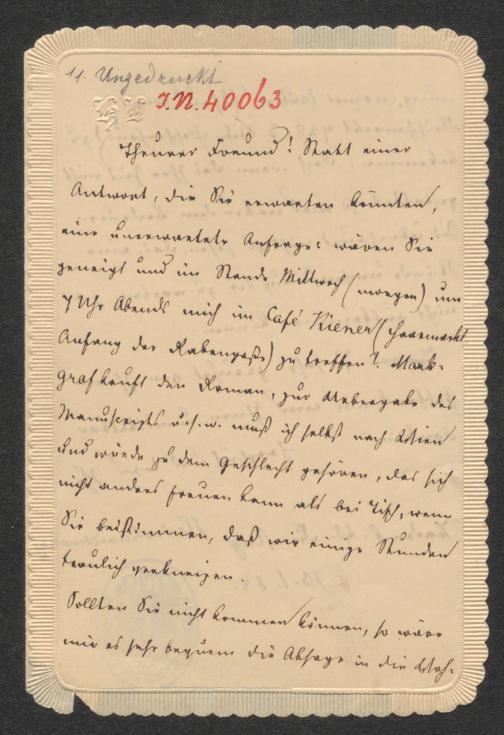 11. Ungedruckt
I.N. 40063
Theurer Freund! Statt einer
Antwort, die Sie erwarten könnten,
eine unerwartete Anfrage: wären Sie
geneigt und im Stande Mittwoch (morgen) um
7 Uhr Abends mich im Café Kiener (Haarmarkt
Anfang der Rabengasse) zu treffen? Mark-
graf kauft den Roman, zur Uebergabe des
Manuscripts u.s.w. muß ich selbst nach Wien
und würde zu dem Geschlecht gehören, das sich
nicht anders freuen kann als bei Tisch, wenn
Sie beistimmen, daß wir einige Stunden
traulich
Sollten Sie nicht kommen können, so wäre
mir es sehr bequem die Absage in die